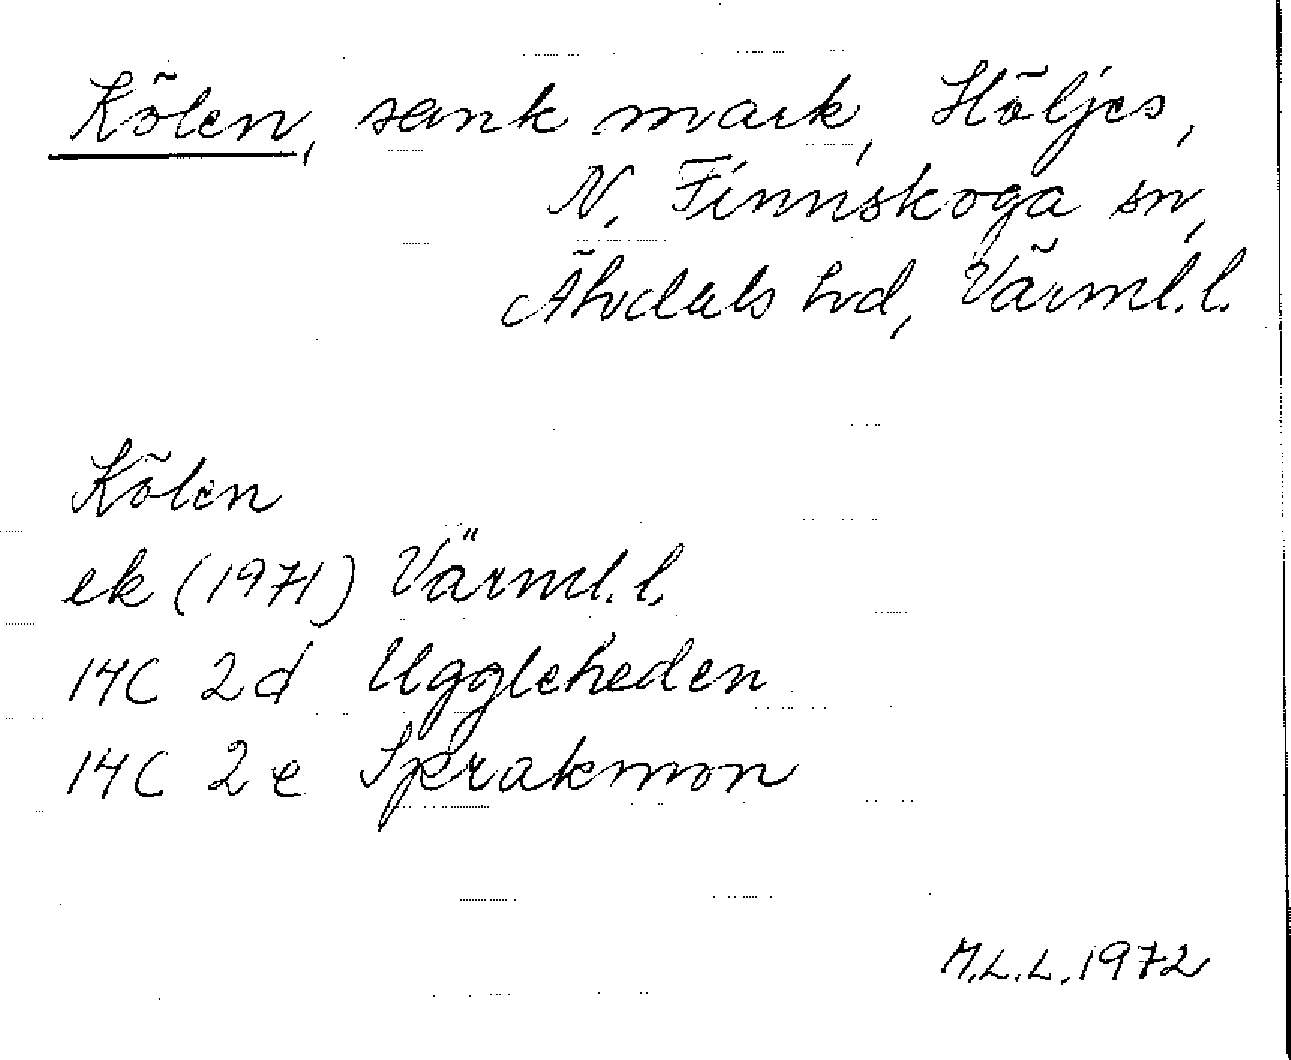 Kölen, sank mark, Höljes,
N. Finnskoga sn,
Älvdals hd, Värml. l.
Kölen
ek (1971) Värml. l.
14C 2d Uggleheden
14C 2e Sprakmon
M.L.L. 1972